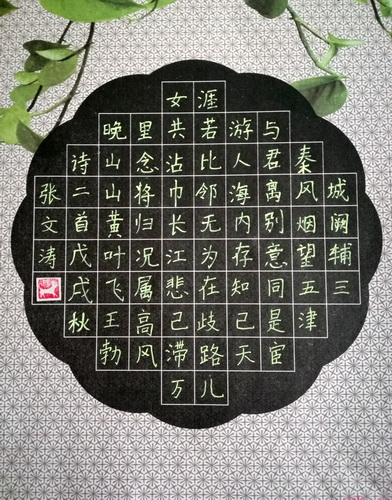 城阙辅三
秦风烟望五津
与君离别意同是宦
游人海内存知己天
涯若比邻无为在歧路儿
女共沾巾长江悲己滞万
里念将归况属高风
晚山山黄叶飞王勃
诗二首戊戌秋
张文涛